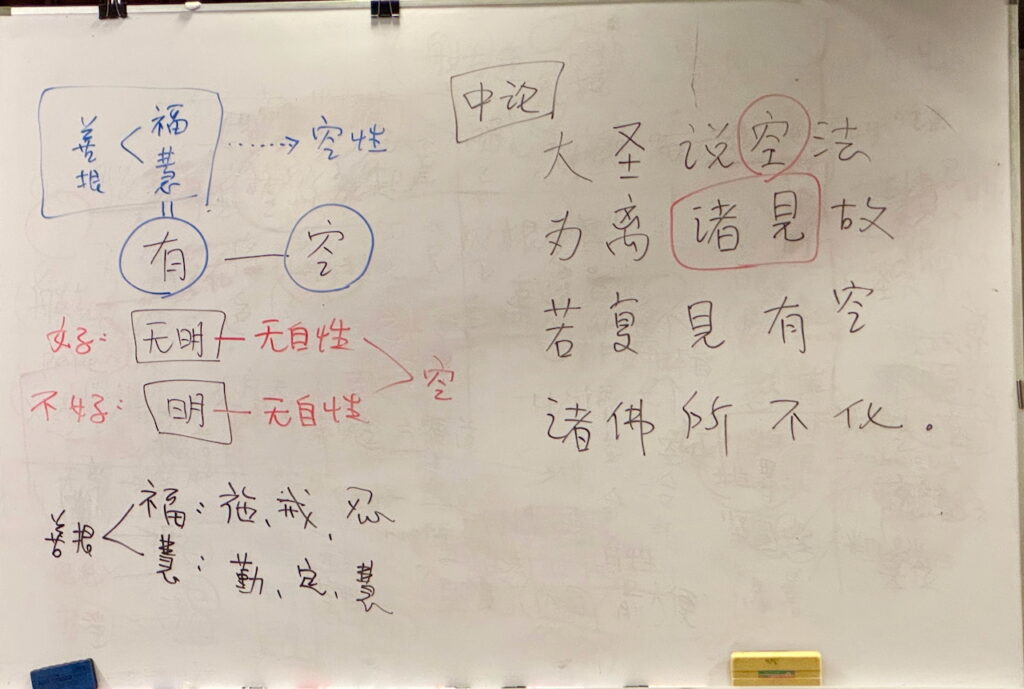 善根 < 福 慧 ┈→ 空性
有 — 空
好: 无明 — 无自性
不好: 明 — 无自性
> 空
善根 < 福: 施、戒、忍
慧: 勤、定、慧
中论
大圣说空法
为离诸見故
若复見有空
诸佛所不化.